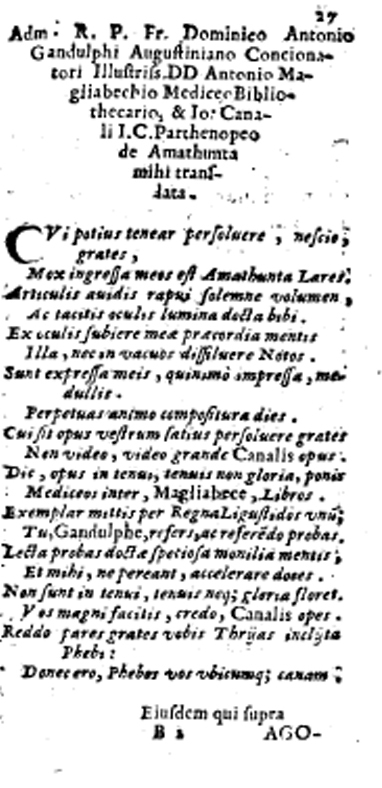 27
Adm. R. P. Fr. Dominico Antonio
Gandulphi Augustiniano Conciona-
tori Illustriſs. DD Antonio Ma-
gliabechio Mediceo Biblio-
thecario, & Io: Cana-
li I.C. Parthenopeo
de Amathunta
mihi tranſ-
data.
CVi potius tenear perſoluere, neſcio,
grates,
Mox ingreſſa meos eſt Amathunta Lares.
Articulis auidis rapui ſolemne volumen,
Ac tacitis oculis lumina docta bibi.
Ex oculis ſubiere meæ præcordia mentis
Illa, nec in vacuos diſſiluere Notos.
Sunt expreſſa meis, quinimò impreſſa, me-
dullis.
Perpetuas animo compoſitura dies.
Cui ſit opus veſtrum ſatius perſoluere grates
Non video, video grande Canalis opus.
Dic, opus in tenui, tenuis non gloria, ponis
Mediceos inter, Magliabece, Libros.
Exemplar mittis per Regna Liguſtidos vnũ;
Tu, Gandulphe, refers, ac referẽdo probas.
Lecta probas doctæ ſpecioſa monilia mentis,
Et mihi, ne pereant, accelerare dotes.
Non ſunt in tenui, tenuis neq; gloria floret.
Vos magni facitis, credo, Canalis opes.
Reddo pares grates vobis Thrijas inclyta
Phebi:
Donec ero, Phebas vos vbicumq; canam;
Eiuſdem qui ſupra
B 2 AGO-